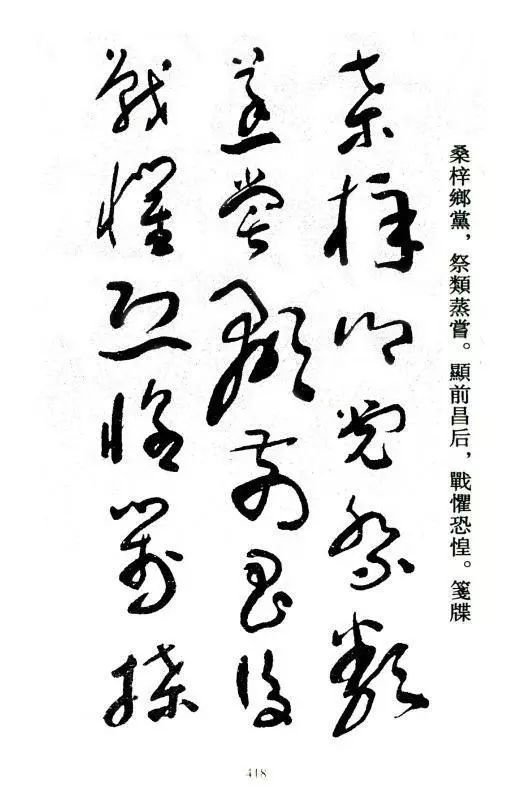 桑梓鄉黨，祭類蒸嘗。顯前昌后，戰懼恐惶。箋牒
桑梓鄉黨祭類
蒸嘗顯前昌後
戰懼恐惶箋牒
418